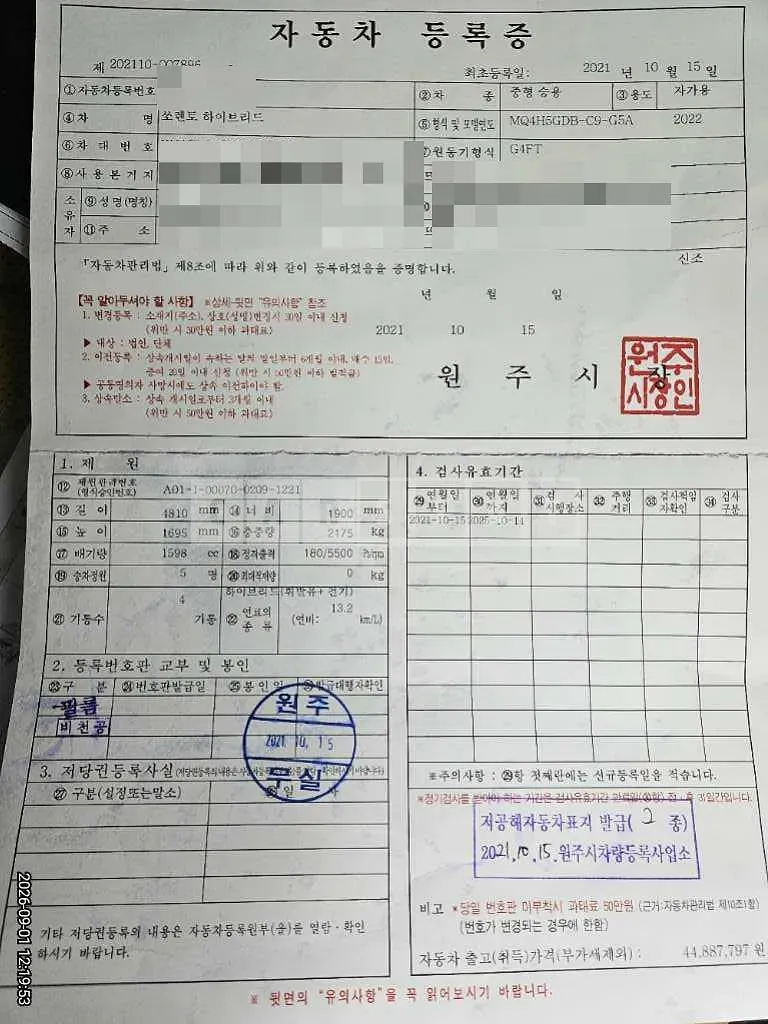 자동차 등록증
제 202110-007896
최초등록일: 2021 년 10 월 15 일
①자동차등록번호 ②차 종 중형 승용 ③용도 자가용
④차 명 쏘렌토 하이브리드 ⑤형식 및 모델연도 MQ4H5GDB-C9-G5A 2022
⑥차대번호 ⑦원동기형식 G4FT
⑧사용본거지
소유자 ⑨성명(명칭)
⑪주 소
「자동차관리법」 제8조에 따라 위와 같이 등록하였음을 증명합니다. 신조
년 월 일
【꼭 알아두셔야 할 사항】 ※상세-뒷면 "유의사항" 참조
1. 변경등록 : 소재지(주소), 상호(성명)변경시 30일 이내 신청
(위반 시 30만원 이하 과태료)
2021 10 15
▶ 대상 : 법인, 단체
2. 이전등록 : 상속개시일이 속하는 달의 말일부터 6개월 이내, 매수 15일,
증여 20일 이내 신청 (위반 시 50만원 이하 범칙금)
▶ 공동명의자 사망시에도 상속 이전하여야 함.
3. 상속말소 : 상속 개시일로부터 3개월 이내
(위반 시 50만원 이하 과태료)
원 주 시 장
원주
시장인
1. 제 원
⑫ 제원관리번호 (형식승인번호) A01-1-00070-0209-1221
⑬ 길 이 4810 mm ⑭ 너 비 1900 mm
⑮ 높 이 1695 mm ⑯ 총중량 2175 kg
⑰ 배기량 1598 cc ⑱ 정격출력 180/5500 Ps/rpm
⑲ 승차정원 5 명 ⑳ 최대적재량 0 kg
㉑ 기통수 4 기통 ㉒ 연료의 종류 하이브리드(휘발유+전기) (연비: 13.2 km/L)
2. 등록번호판 교부 및 봉인
㉓구 분 ㉔번호판발급일 ㉕봉인일 ㉖발급대행자확인
필름
비천공
원주
2021. 10. 15
3. 저당권등록사실
㉗ 구분(설정또는말소) ㉘일 자
기타 저당권등록의 내용은 자동차등록원부(을)를 열람·확인
하시기 바랍니다.
4. 검사유효기간
㉙연월일부터 ㉚연월일까지 ㉛검 사 시행장소 ㉜주행거리 ㉝검사책임자확인 ㉞검사구분
2021-10-15 2025-10-14
※주의사항 : ㉙항 첫째란에는 신규등록일을 적습니다.
※정기검사를 받아야 하는 기간은 검사유효기간 만료일(㉚항) 전·후 31일간입니다.
저공해자동차표지 발급( 2 종)
2021. 10. 15. 원주시차량등록사업소
비고 ※당일 번호판 미부착시 과태료 50만원 (근거:자동차관리법 제10조1항)
(번호가 변경되는 경우에 한함)
자동차 출고(취득)가격(부가세제외) : 44,887,797 원
※ 뒷면의 "유의사항"을 꼭 읽어보시기 바랍니다.
2026-09-01 12:19:53